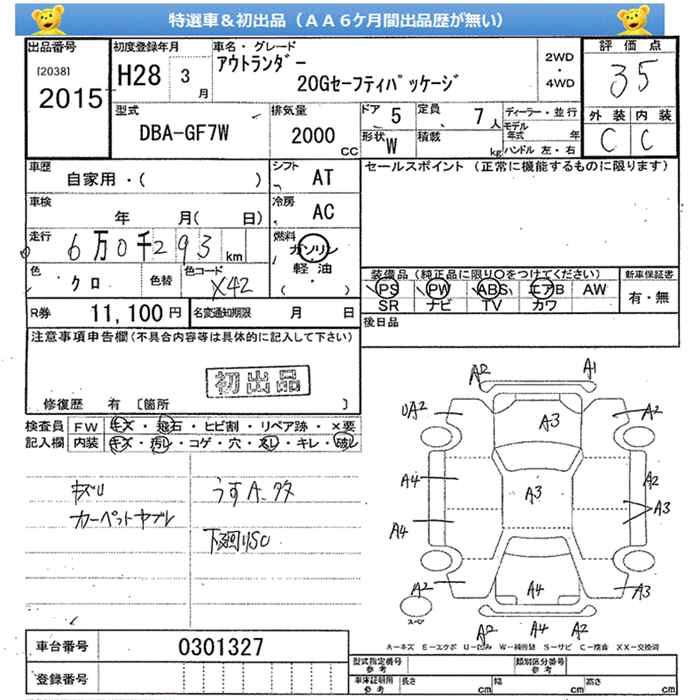 特選車＆初出品（ＡＡ６ケ月間出品歴が無い）
出品番号 初度登録年月 車名・グレード 評価点
[2038] アウトランダー 2WD
2015 H28 3月 20Gセーフティパッケージ ・ 4WD 35
型式 排気量 ドア 5 定員 7人 ディーラー・並行 外装 内装
DBA-GF7W 2000 CC 形状 W 積載 kg モデル年式 年 C C
ハンドル 左・右
車歴 シフト セールスポイント（正常に機能するものに限ります）
自家用・( ) AT
車検 冷房
年 月( 日) AC
走行 6万0千293km 燃料 ガソリン
軽油
( ・ )
色 クロ 色替 色コード X42
装備品（純正品に限り○をつけてください） 新車保証書
PS PW ABS エアB AW 有・無
SR ナビ TV カワ
R券 11,100円 名変通知期限 月 日 後日品
注意事項申告欄(不具合内容等は具体的に記入して下さい)
初出品
修復歴 有 〔箇所 〕
検査員 FW キズ・飛石・ヒビ割・リペア跡・×要
記入欄 内装 キズ・汚し・コゲ・穴・スレ・キレ・破レ
うすA.タタ
カーペットヤブレ
下廻りSC
A2 A1
UA2 A3 A2
A4 A3 A2
A3
A4
A2 A4 A3
スペア
A2 A4 A2
A－キズ E－エクボ U－凹み W－補修跡 S－サビ C－腐食 XX－交換済
車台番号 0301327
登録番号
型式指定番号 参考 類別区分番号 参考
車庫証明用 参考 長さ cm 幅 cm 高さ cm